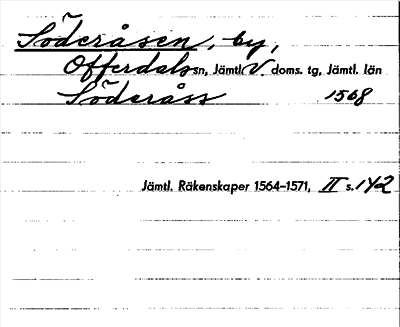 Söderåsen, by,
Offerdals sn, Jämtl. V. doms. tg, Jämtl. län
Söderåss 1568
Jämtl. Räkenskaper 1564–1571, II s. 142